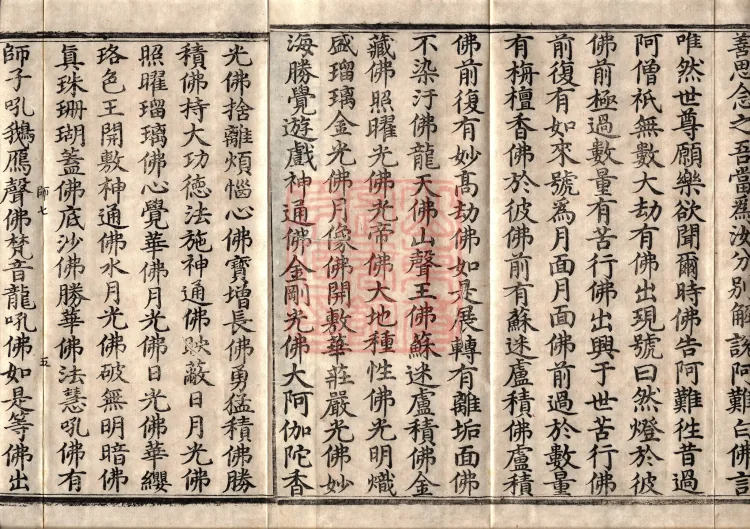 善思念之吾當爲汝分別解說阿難白佛言
唯然世尊願樂欲聞爾時佛告阿難徃昔過
阿僧祇無數大劫有佛出現號曰然燈於彼
佛前極過數量有苦行佛出興于世苦行佛
前復有如來號爲月面月面佛前過於數量
有栴檀香佛於彼佛前有蘇迷盧積佛盧積
佛前復有妙髙劫佛如是展轉有離垢面佛
不染汙佛龍天佛山聲王佛蘇迷盧積佛金
藏佛照曜光佛光帝佛大地種性佛光明熾
盛瑠璃金光佛月像佛開敷華莊嚴光佛妙
海勝覺遊戲神通佛金剛光佛大阿伽陀香
光佛捨離煩惱心佛寶增長佛勇猛積佛勝
積佛持大功德法施神通佛映蔽日月光佛
照曜瑠璃佛心覺華佛月光佛日光佛華纓
珞色王開敷神通佛水月光佛破無明暗佛
眞珠珊瑚蓋佛底沙佛勝華佛法慧吼佛有
師七 五
師子吼鵝鴈聲佛梵音龍吼佛如是等佛出